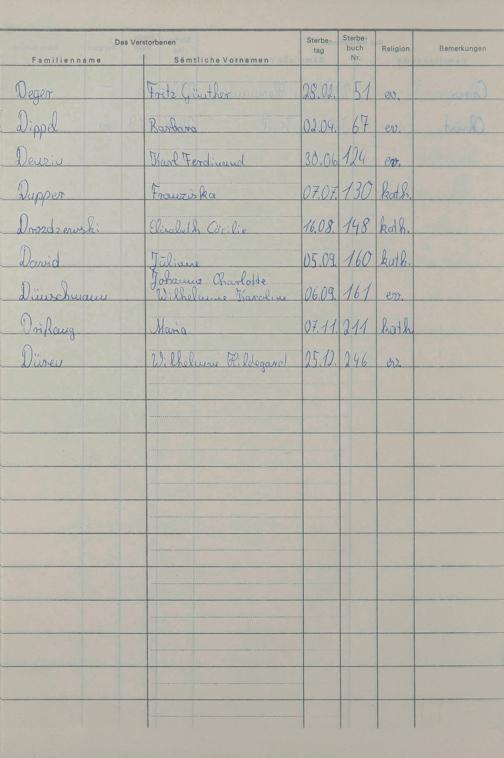 Des Verstorbenen Sterbe-tag Sterbe-buch Nr. Religion Bemerkungen
Familienname Sämtliche Vornamen
Deger Fritz Günther 28.02. 51 ev.
Dippel Barbara 02.04. 67 ev.
Denziu Karl Ferdinand 30.06 124 ev.
Dupper Franziska 07.07. 130 kath.
Drozdzewski Elisabeth Cäcilie 16.08. 148 kath.
David Juliane 05.09. 160 kath.
Johanna Charlotte
Dünschmann Wilhelmine Karoline 06.09. 161 ev.
Maria 07.11. 211 kath.
Düren Wilhelmine Hildegard 25.12. 246 ev.